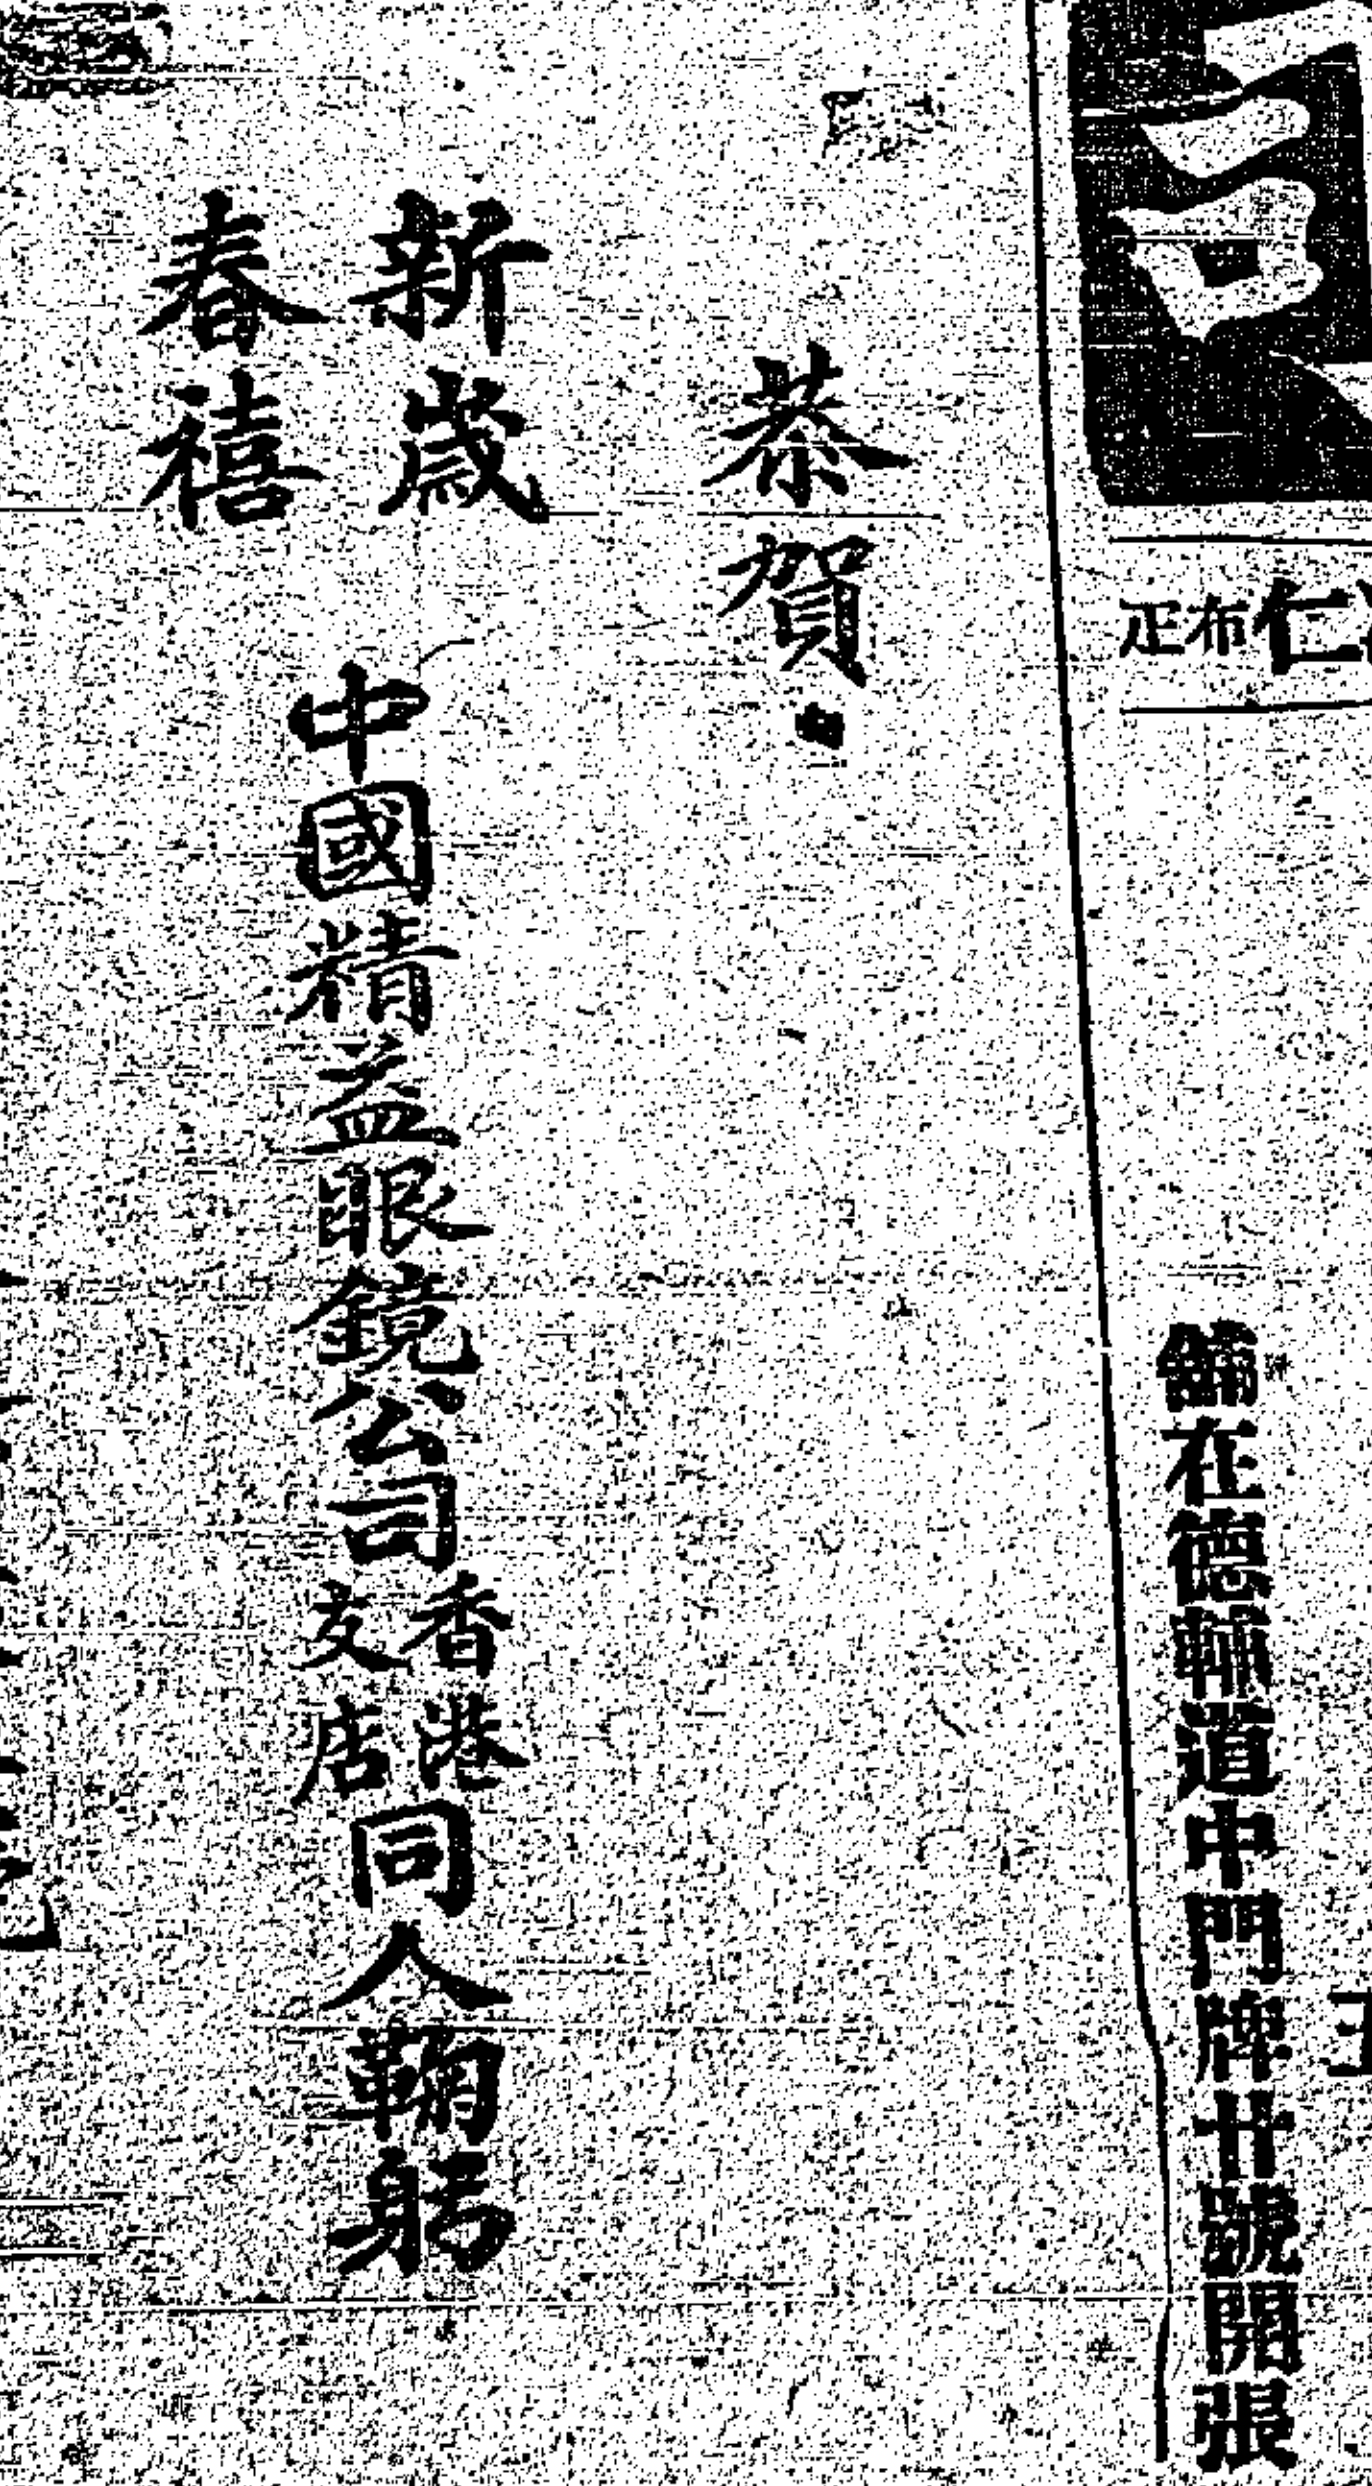 仁布疋
舖在德輔道中門牌廿號開張
恭賀
新歲
春禧
中國精益眼鏡公司香港支店同人鞠躬